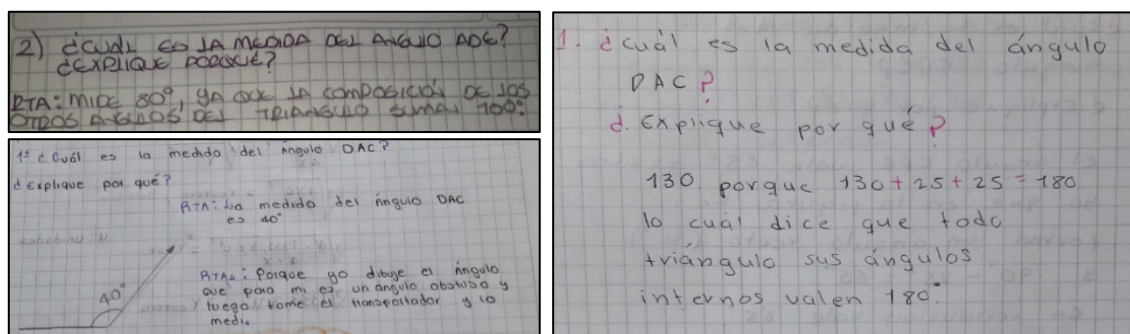 2) ¿CUAL ES LA MEDIDA DEL ANGULO ADE?
¿EXPLIQUE PORQUE?
RTA: MIDE 80°, YA QUE LA COMPOSICIÓN DE LOS
OTROS ANGULOS DEL TRIANGULO SUMAN 100°.
1° ¿Cuál es la medida del Angulo DAC?
¿Explique por qué?
RTA: La medida del Angulo DAC
es 40°
40°
RTA2: Porque yo dibuje el Angulo
que para m es un angulo obstuso y
luego tome el transportador y lo
medi.
1. ¿Cuál es la medida del ángulo
DAC?
¿. Explique por qué?
130 porque 130 + 25 + 25 = 180
lo cuál dice que todo
triángulo sus ángulos
internos valen 180°.